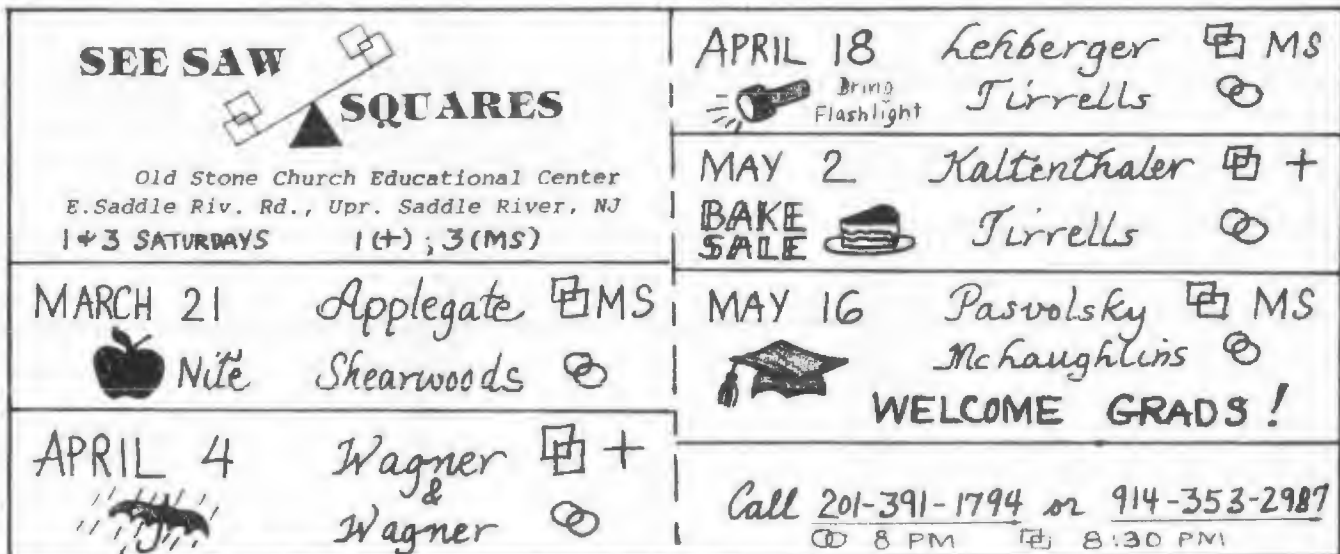 SEE SAW
SQUARES
Old Stone Church Educational Center
E.Saddle Riv. Rd., Upr. Saddle River, NJ
1 & 3 SATURDAYS 1(+); 3(MS)
MARCH 21 Applegate MS
Nite Shearwoods
APRIL 4 Wagner +
&
Wagner
APRIL 18 Lehberger MS
Bring
Flashlight Tirrells
MAY 2 Kaltenthaler +
BAKE
SALE Tirrells
MAY 16 Pasvolsky MS
McLaughlins
WELCOME GRADS!
Call 201-391-1794 or 914-353-2987
8 PM 8:30 PM